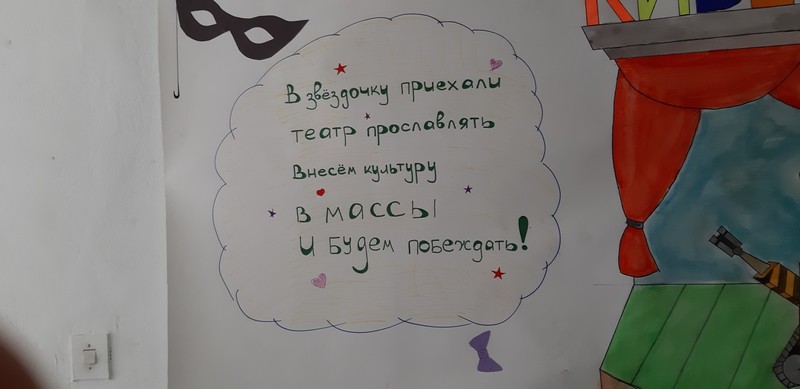 В звёздочку приехали
театр прославлять
Внесём культуру
в массы
и будем побеждать!